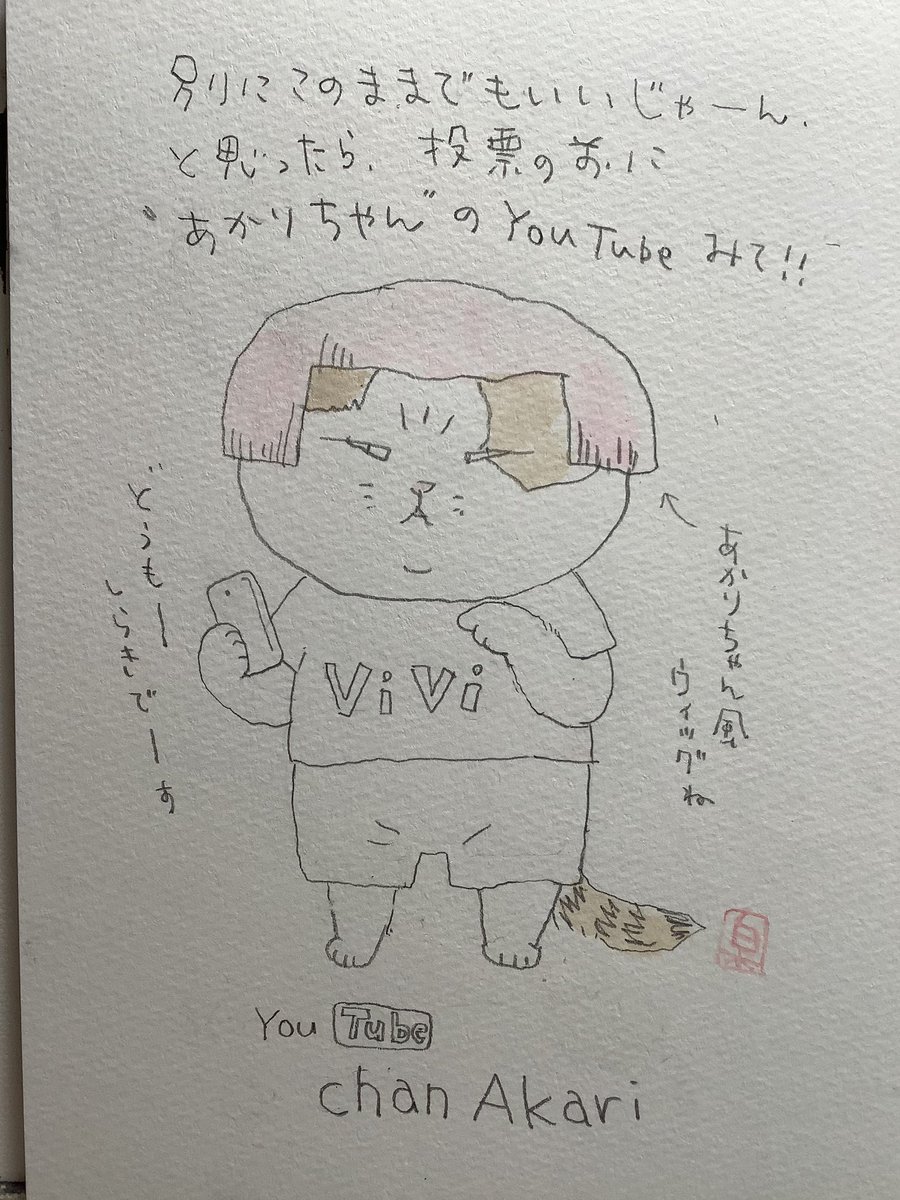 別にこのままでもいいじゃーん、
と思ったら、投票の前に
"あかりちゃん"の YouTube みて!!
どうもー
しらきでーす
あかりちゃん風
ウィッグね
ViVi
白
You Tube
chan Akari